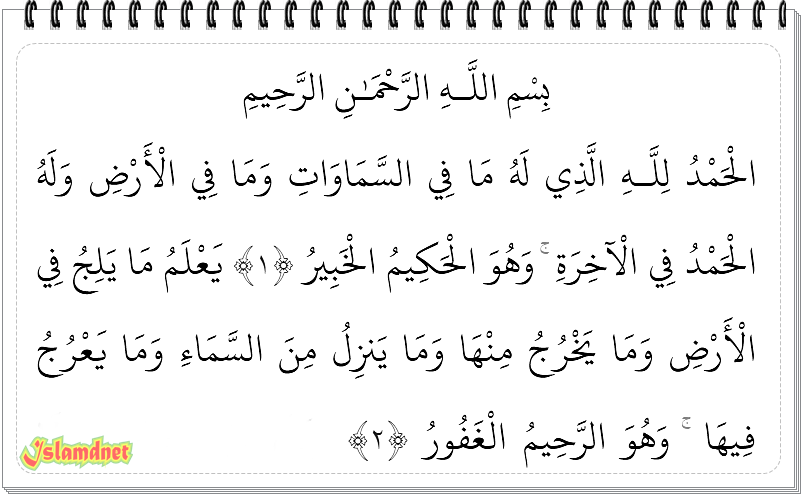 بِسْمِ اللَّـهِ الرَّحْمَـٰنِ الرَّحِيمِ
الْحَمْدُ لِلَّـهِ الَّذِي لَهُ مَا فِي السَّمَاوَاتِ وَمَا فِي الْأَرْضِ وَلَهُ
الْحَمْدُ فِي الْآخِرَةِ ۚ وَهُوَ الْحَكِيمُ الْخَبِيرُ ﴿١﴾ يَعْلَمُ مَا يَلِجُ فِي
الْأَرْضِ وَمَا يَخْرُجُ مِنْهَا وَمَا يَنزِلُ مِنَ السَّمَاءِ وَمَا يَعْرُجُ
فِيهَا ۚ وَهُوَ الرَّحِيمُ الْغَفُورُ ﴿٢﴾
Islamdnet